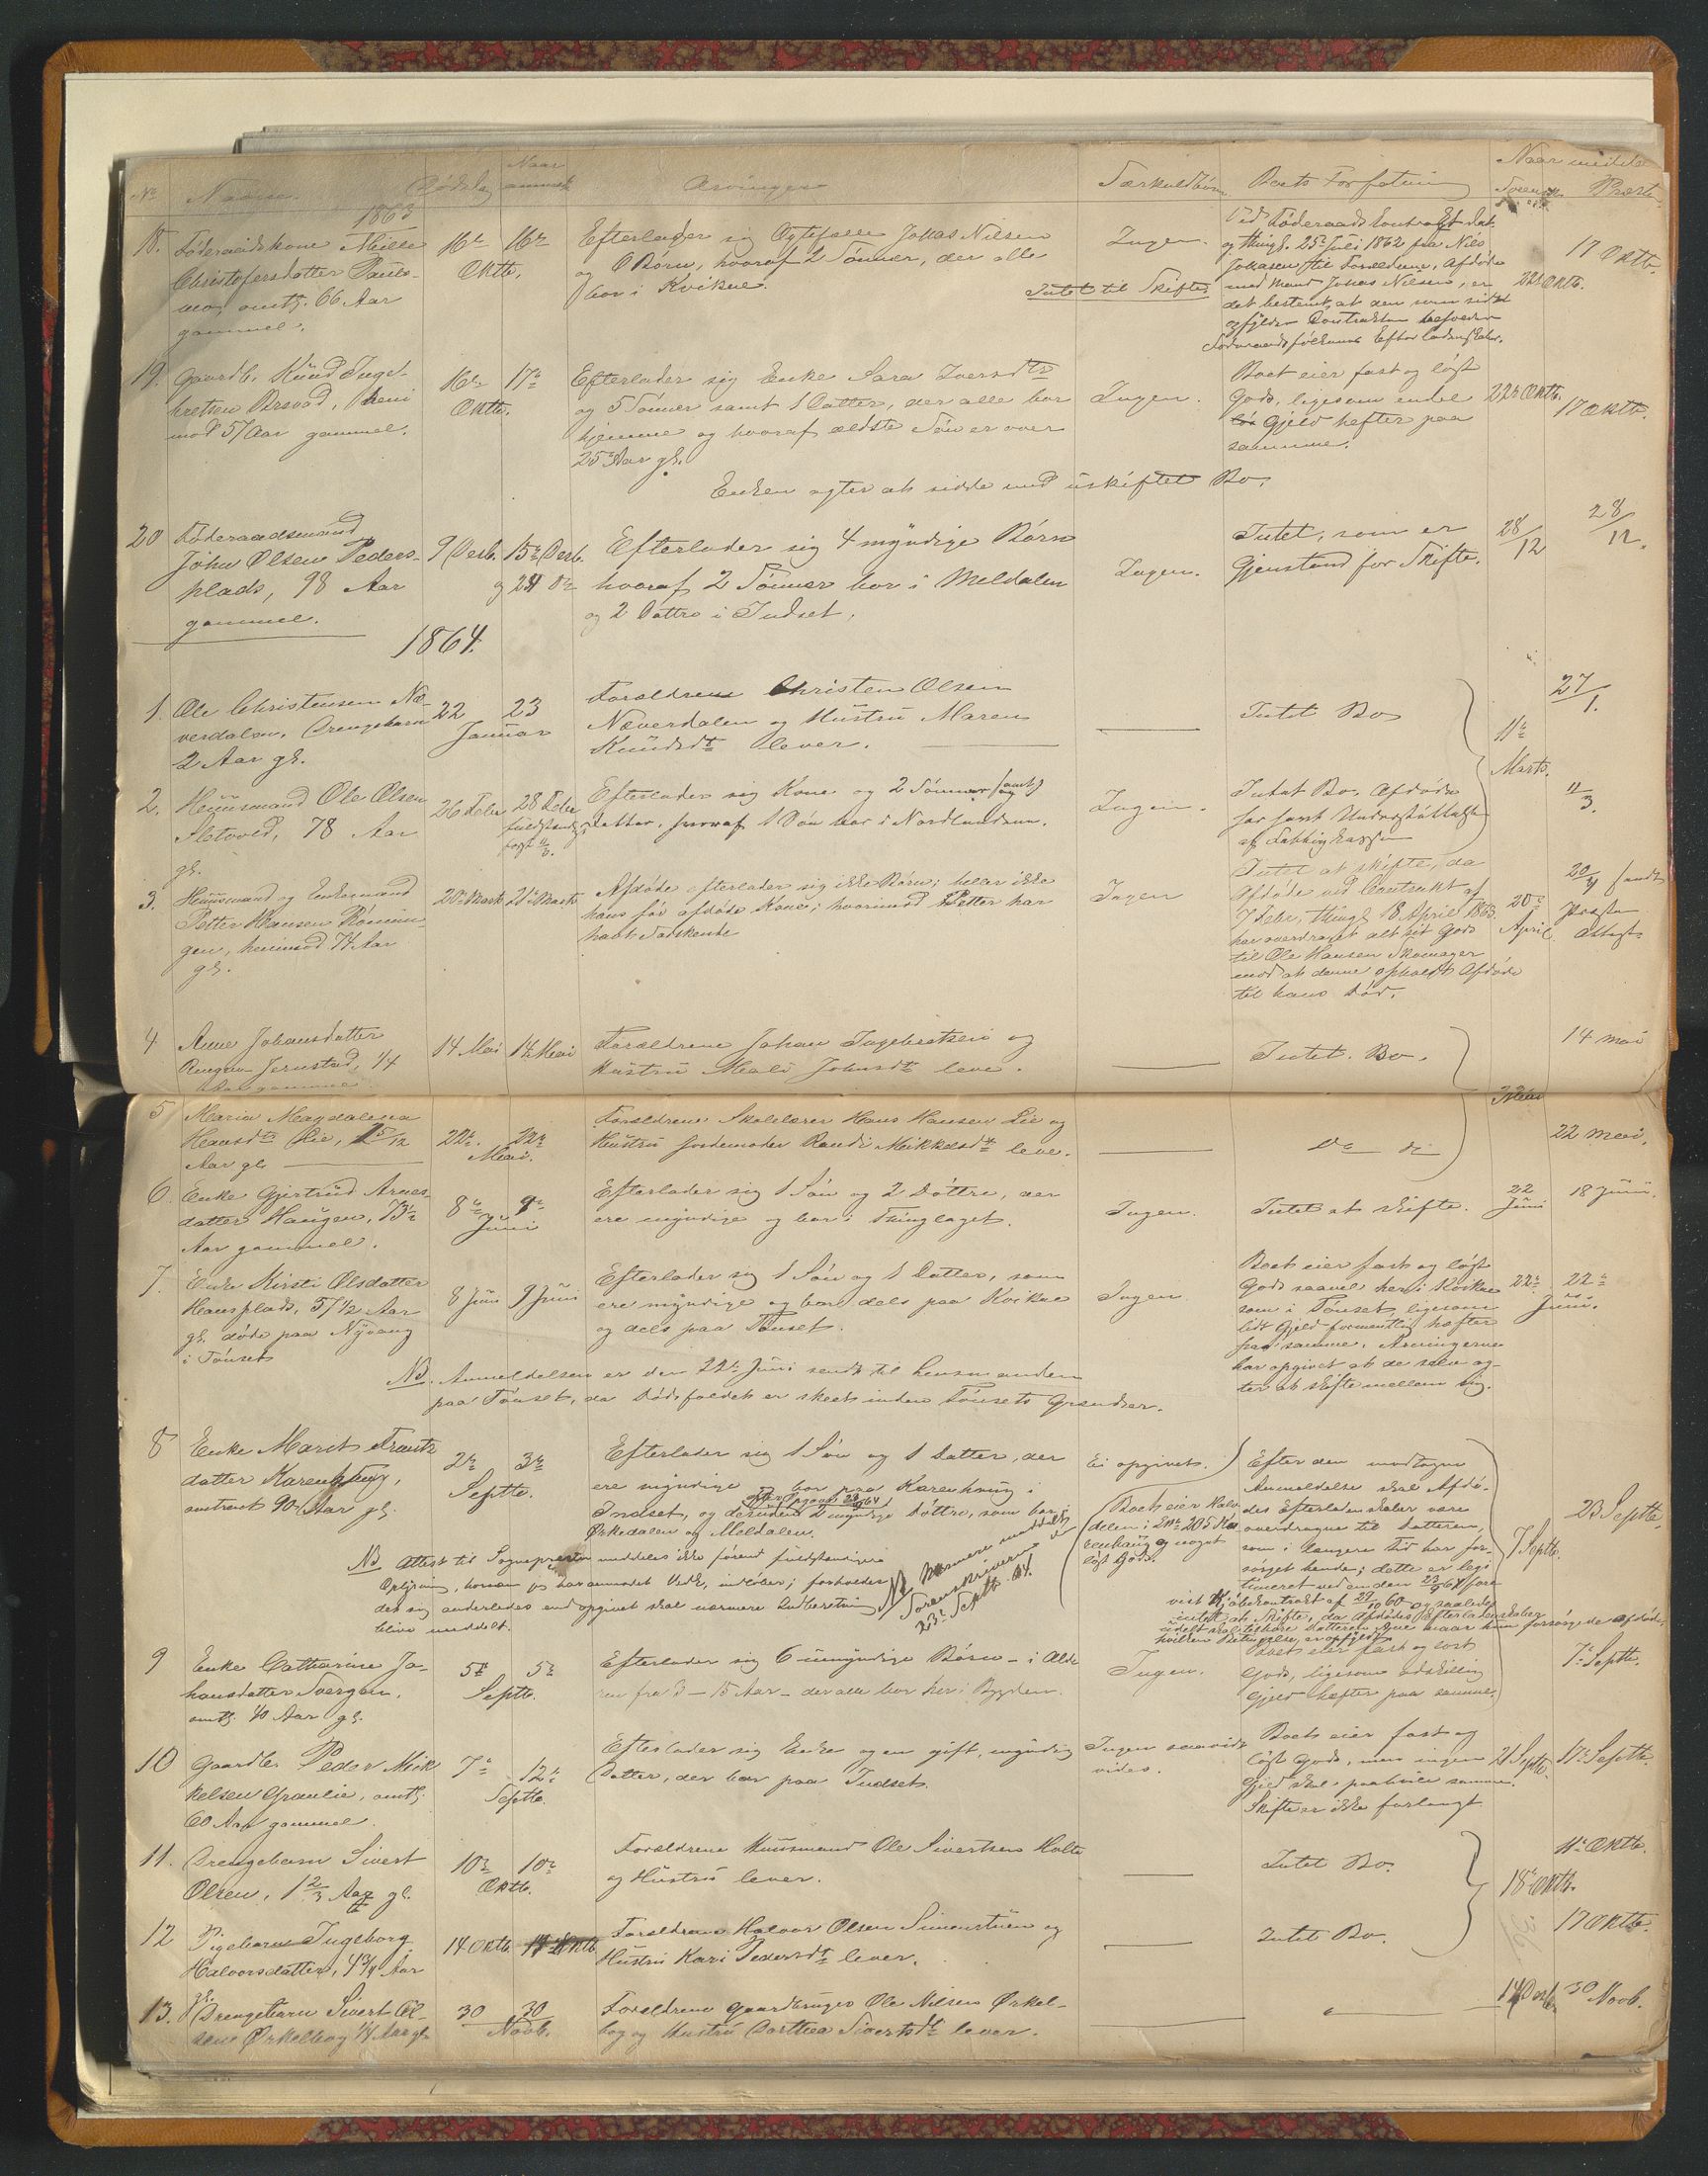 No
Navne.
Dødsdag
Naar
anmeldt
Arvinger
Særkuldbørn
Boets Forfatning
Naar meddelt
Sorenskr.
Præst
1863
18. Føderaadskone Mille
Christofersdatter
omtr. 66 Aar
gammel.
16de
Oktb.
16de
Efterlader sig Ægtefælle Johas Nilsen
og Børn, hvoraf 2 Sønner, der alle
bor i Kvikne.
Intet til Skifte.
Ingen.
Ved Føderaads Contract dat.
og thingl. 25de Juli 1862 fra Nils
Johasen til Forældrene, Afdøde
med Mand Johas Nilsen, er
det bestemt, at den som sidst
opfylder Contracten
Føderaadsfolkenes Efterladenskaber.
22de Oktb.
17 Oktb.
19. Gaardb. Knud Inge-
bretsen
mod 57 Aar gammel.
16de
Oktb.
17de
Efterlader sig Enke Sara Iversdtr
og 5 Sønner samt 1 Datter, der alle bor
hjemme og hvoraf ældste Søn er over
25 Aar gl.
Enken agter at sidde med uskiftet Bo.
Ingen.
Boet eier fast og løst
Gods, ligesom endel
Gjeld hefter paa
samme.
22de Oktb.
17 Oktb.
20 Føderaadsmand
John Olsen Peders-
plads, 98 Aar
gammel.
9 Decb.
15de Decb.
og 24 de
Efterlader sig 4 myndige Børn
hvoraf 2 Sønner bor i Meldalen
og 2 Døttre i Indset.
Ingen.
Intet, som er
Gjenstand for Skifte.
28/12
28/12.
1864.
1. Ole Christensen Næ-
verdalen. Drengebarn
2 Aar gl.
22 23
Januar
Forældrene Christen Olsen
Næverdalen og Hustru Maren
Knudsdtr lever.
Intet Bo
11te
Marts.
27/1.
2. Huusmand Ole Olsen
Sletvold, 78 Aar
gl.
26 Febr
28 Febr
fuldstændig
Efterlader sig Kone og 2 Sønner (samt)
Datter, hvoraf 1 Søn bor i Nordlandene.
Ingen.
Intet Bo. Afdøde
har havt Understøttelse
af Fattigkassen
11/3.
3. Huusmand og Enkemand
Petter Hansen Rønnin-
gen, henimod 74 Aar
gl.
20 Marts
21 Marts
Afdøde efterlader sig ikke Børn; heller ikke
hans før afdøde Kone; hvorimod Petter har
havt Sødskende
Ingen
Intet at skifte, da
Afdøde ved Contrakt af
7 Febr. thingl. 18 April 1863
har overdraget alt sit Gods
til Ole Hansen Skomager
mod at denne opholdt Afdøde
til hans Død.
20de
April
20/4 sendt
Præste
Attest
4 Anne Johansdatter
Jernstad, 1/4
Aar gammel
14 Mai
14 Mai
Forældrene Johan Ingebretsen og
Hustru Mali Johnsdtr leve.
Intet Bo.
Mai
14 Mai
5 Maria Magdalena
Hansdtr Lie, 5/12
Aar gl.
22de 22de
Mai.
Forældrene Skolelærer Hans Hansen Lie og
Hustru Jordemoder Randi Mikkelsdtr leve.
Do do
22 Mai.
6. Enke Gjertrud Arnes-
datter Haugen, 73½
Aar gammel.
8de 9de
Juni
Efterlader sig 1 Søn og 2 Døttre, der
ere myndige og bor i Thinglaget.
Ingen.
Intet at skifte.
22
Juni
18 Juni.
7. Enke Kirsti Olsdatter
Hansplads, 57½ Aar
gl. døde paa Nyvang
i Tønset
8 Juni
9 Juni
Efterlader sig 1 Søn og 1 Datter, som
ere myndige og bor dels paa Kvikne
og dels paa Tønset.
NB. Anmeldelsen er den 22de Juni sendt til Lensmanden
paa Tønset, da Dødsfaldet er skeet inden Tønsets Grændser.
Ingen
Boet eier fast og løst
Gods saavel her i Kvikne
som i Tønset, ligesom
lidt Gjeld formentlig hefter
paa samme. Arvingerne
har opgivet at de selv ag-
ter at skifte mellem sig.
22de 22de
Juni.
8 Enke Marit Frants-
datter Karenhaug,
omtrent 90 Aar gl.
2de 3de
Septb.
Efterlader sig 1 Søn og 1 Datter, der
ere myndige og bor paa Karenhaug i
Indset, og desuden 2 myndige Døttre, som bor i
Ørkedalen og Meldalen.
NB Attest til Sognepræsten meddeles ikke førend fuldstændigere
Oplysning, hvorom jeg har anmodet Vedk., indløber; forholder
det sig anderledes end opgivet skal nærmere Indberetning
blive meddelt.
NB Nærmere meddelt
Sorenskriveren
23de Septb. 64.
Ei opgivet.
Boet eier Halv-
delen i Ka-
renhaug og noget
løst Gods.
Efter den modtagne
Anmeldelse skal Afdø-
des Efterladenskaber være
overdragne til Datteren,
som i længere Tid har for-
sørget hende; dette er legi-
timeret ved en den fore-
vist Kjøbekontrakt af og saaledes
intet at skifte, da Afdødes Efterladenskaber
7 Septb.
23 Septb.
9 Enke Catharine Jo-
hansdatter
omtr. 40 Aar gl.
5te 5te
Septb.
Efterlader sig 6 umyndige Børn – i Alde-
ren fra 3 – 15 Aar – der alle bor her i Bygden.
Ingen.
Boet eier fast og løst
Gods, ligesom adskillig
Gjeld hæfter paa samme.
7de Septb.
10 Gaardbr. Peder Mik-
kelsen Graulie, omtr.
60 Aar gammel.
7de 12te
Septb.
Efterlader sig Enke og en gift, myndig
Datter, der bor paa Indset.
Ingen saavidt
vides.
Boet eier fast og
løst Gods, men ingen
Gjeld skal paahvile samme.
Skifte er ikke forlangt
21 Septb.
17 Septb.
11. Drengebarn Sivert
Olsen, 1 2/3 Aar gl.
10de 10de
Oktb.
Forældrene Huusmand Ole Sivertsen Holte
og Hustru lever.
Intet Bo.
18de Oktb.
11te Oktb.
12 Pigebarn Ingeborg
Halvorsdatter, 4 3/4 Aar
gl.
14 Oktb.
17 Oktb
Forældrene Halvor Olsen Simenstuen og
Hustru Kari Pedersdtr lever.
Intet Bo.
17 Oktb.
13. Drengebarn Sivert Ol-
sen Ørkelbog 1/4 Aar gl.
30 30
Novb.
Forældrene Gaardbruger Ole Nilsen Ørkel-
bog og Hustru Dorthea Sivertsdtr lever.
14 Decb.
30 Novb.